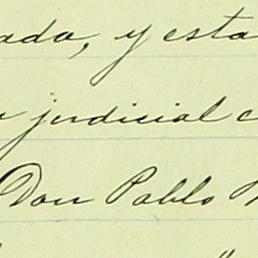 ada, y esta
judicial c
Don Pablo